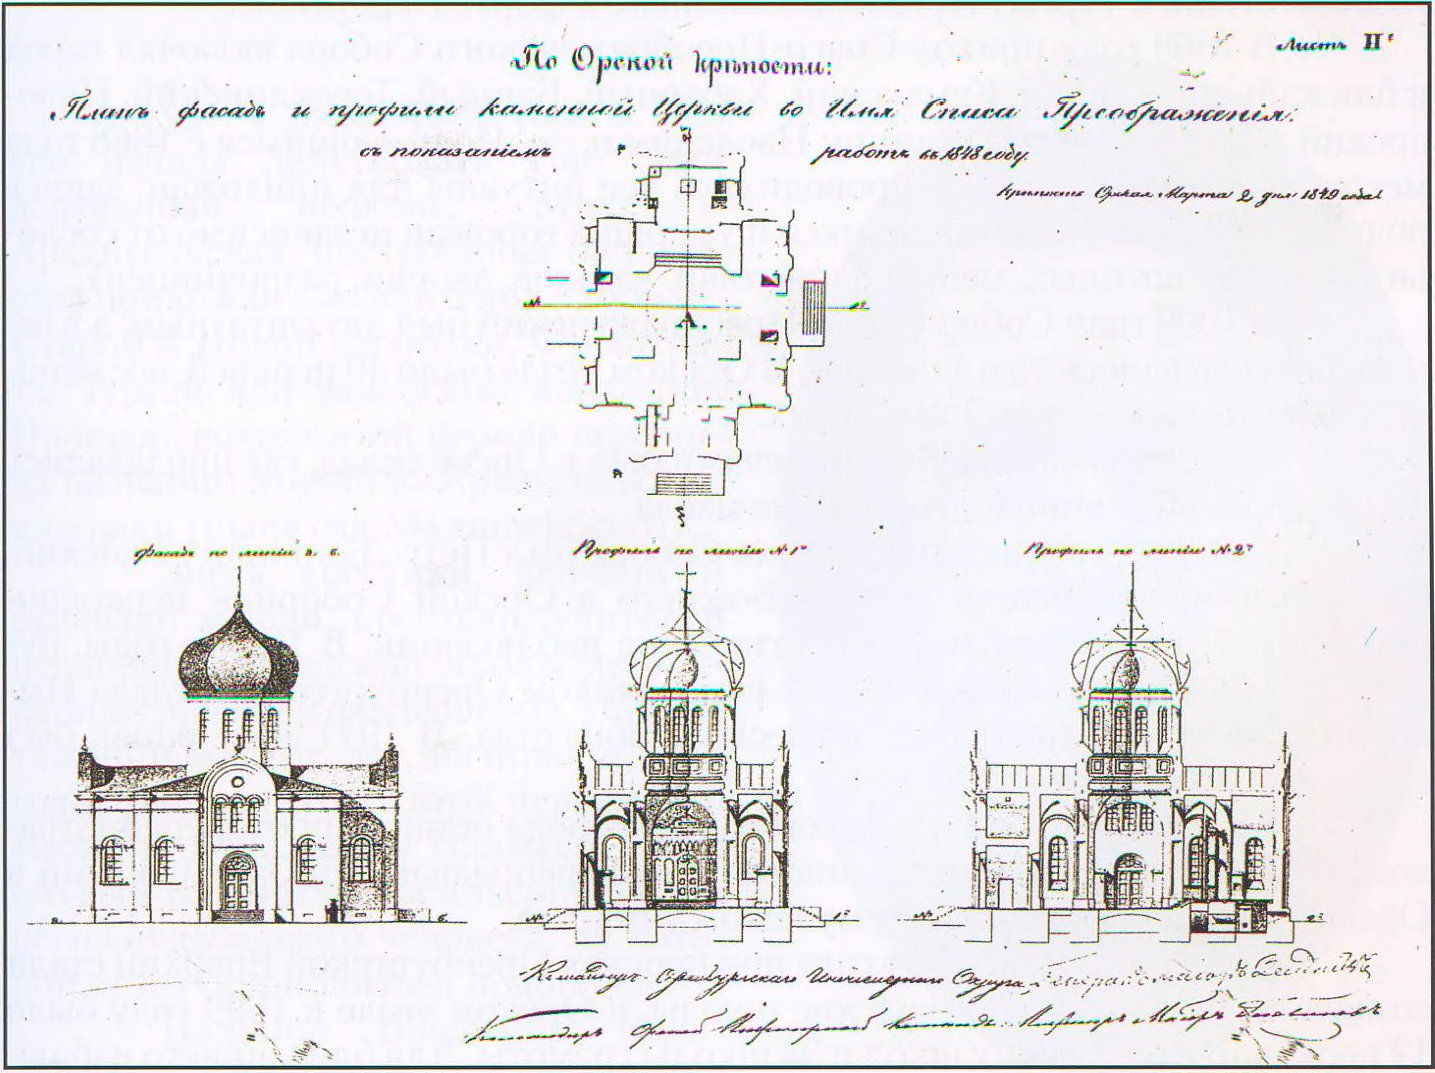 Листъ II
По Орской крѣпости:
Планъ фасадъ и профили каменной Церкви во Имя Спаса Преображенія.
съ показаніемъ работъ въ 1848 году.
крѣпость Орская Марта 2 дня 1849 года
Фасадъ по линіи а. б.
Профиль по линіи №1
Профиль по линіи №2
а б
№ 1
№ 2
Командиръ Оренбургскаго Инженернаго Округа Генералъ-маіоръ
Командиръ Орской Инженерной Команды Инженеръ